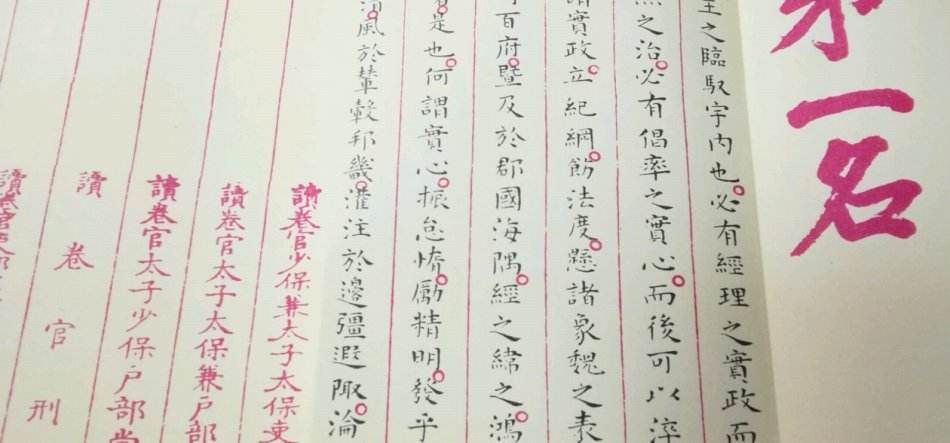 第一名
主之臨馭宇内也必有經理之實政而
之治必有倡率之實心而後可以淬
謂實政立紀綱飭法度懸諸象魏之表
百府暨及於郡國海隅經之緯之鴻
是也何謂實心振怠惰勵精明發乎
風於輦轂邦畿灌注於邊疆遐陬淪
讀卷官少保兼太子太保吏
讀卷官太子太保兼戶部
讀卷官太子少保戶部尚
讀卷官刑
讀卷官